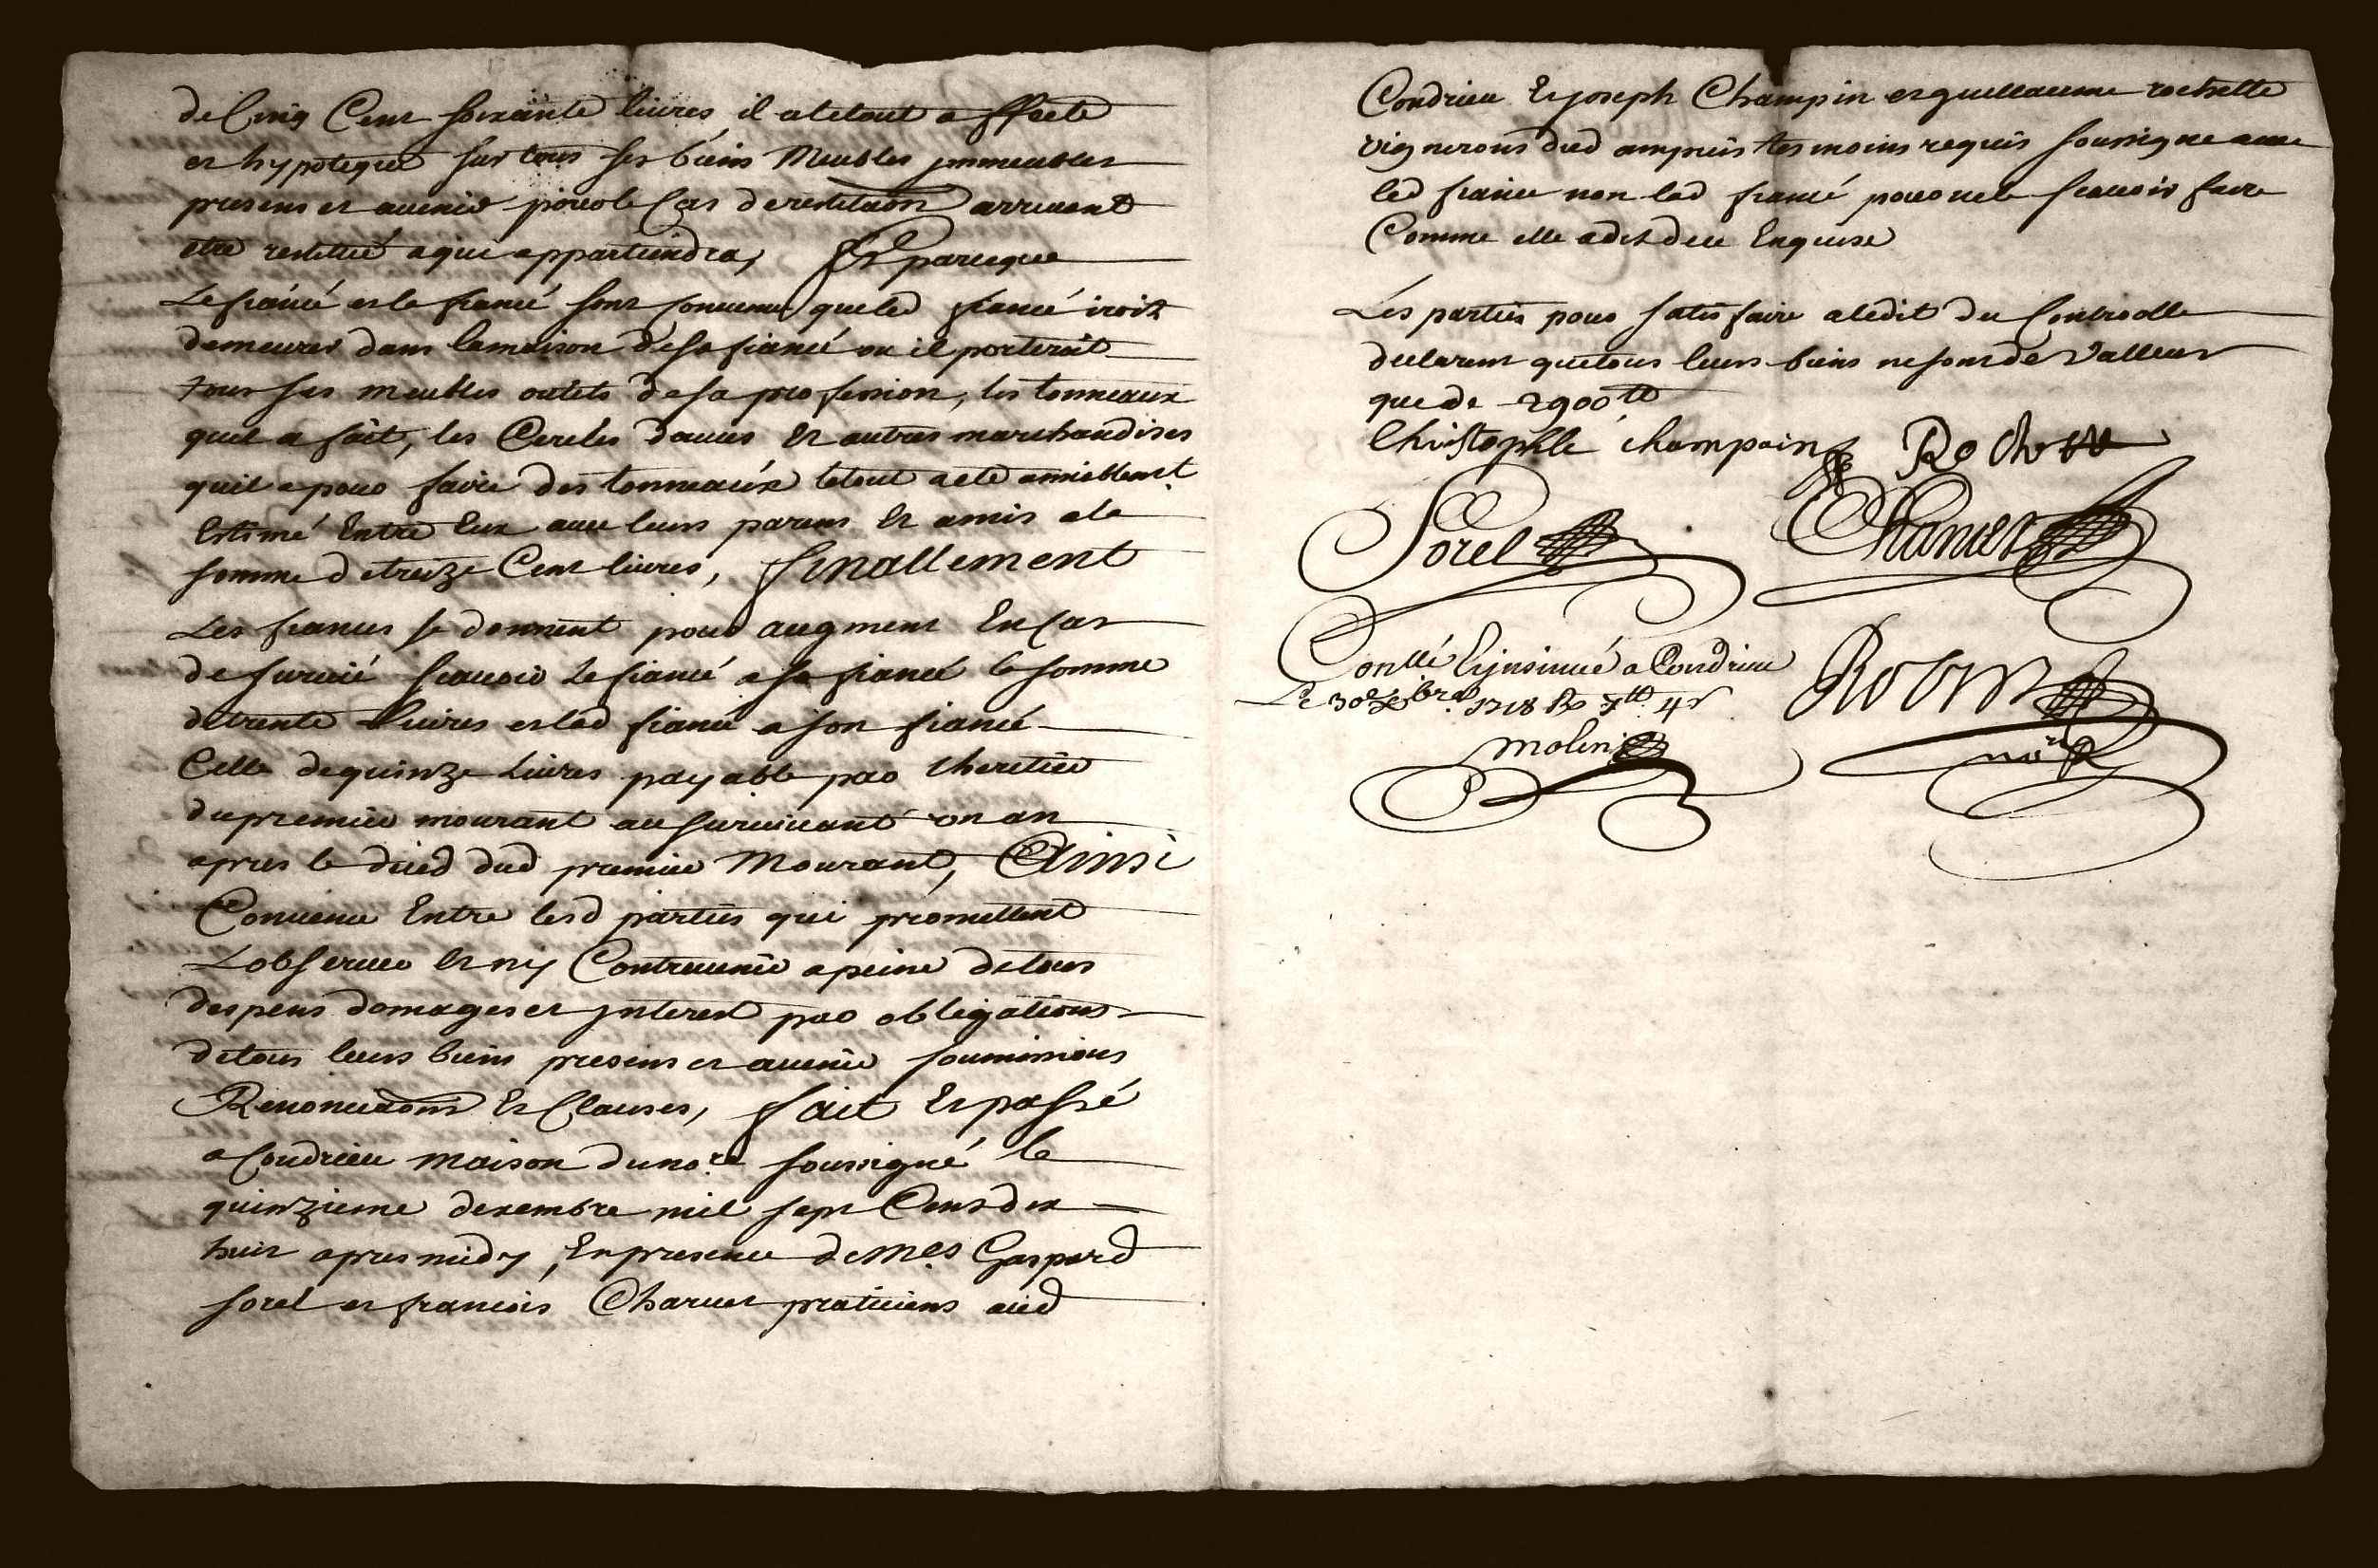 de Cinq Cent soixante livres il a le tout affecte
et hypotequé sur tous ses biens Meubles immeubles
presens et avenir pour le Cas de restitution arrivant
etre restitué a qui appartiendra, Et parceque
Le fiancé et la fiancé sont convenus que led fiancé iroit
demeurer dans la maison de sa fiancé ou il porteroit
tous ses meubles outils de sa profession, les tonneaux
quil a fait, les Cercles douves Et autres marchandises
quil a pour faire des tonneaux le tout a ete amiablemt
Estimé Entre Eux avec leurs parens Et amis a la
somme de treize Cent livres, finallement
Les fiances se donnent pour augment En Cas
de survie scavoir Le fiancé a sa fiancé la somme
de trente Livres et lad fiancé a son fiancé
Celle de quinze Livres payable par lheritier
du premier mourant au survivant un an
apres le deced dud premier Mourant, Ainsi
Convenu Entre lesd parties qui promettent
Lobserver Et ny Contrevenir a peine de tous
despens domages et interest par obligations
de tous leurs biens presens et avenir soumissions
Renonciaons Et Clauses, fait Et passé
a Condrieu maison du nore soussigné le
quinzieme dexembre mil sept Cens dix
huit apres midy, En presence de Mes Gaspard
sorel et francois Charvet praticiens aud
Condrieu Et joseph Champin et guillaume rochette
vignerons dud ampuis tesmoins requis soussigne avec
led fiancé non lad fiancé pour ne le scavoir faire
Comme elle a dit de ce Enquise
Les parties pour satisfaire a ledit du Controolle
declarent que tous leurs biens ne sont de valleur
que de 2900 tt
Christophle champain Rochette
Sorel Charvet
Conllé Et insinué a Condrieu
Le 30e Xbre 1718 R 7tt 4s Robin
molin nore